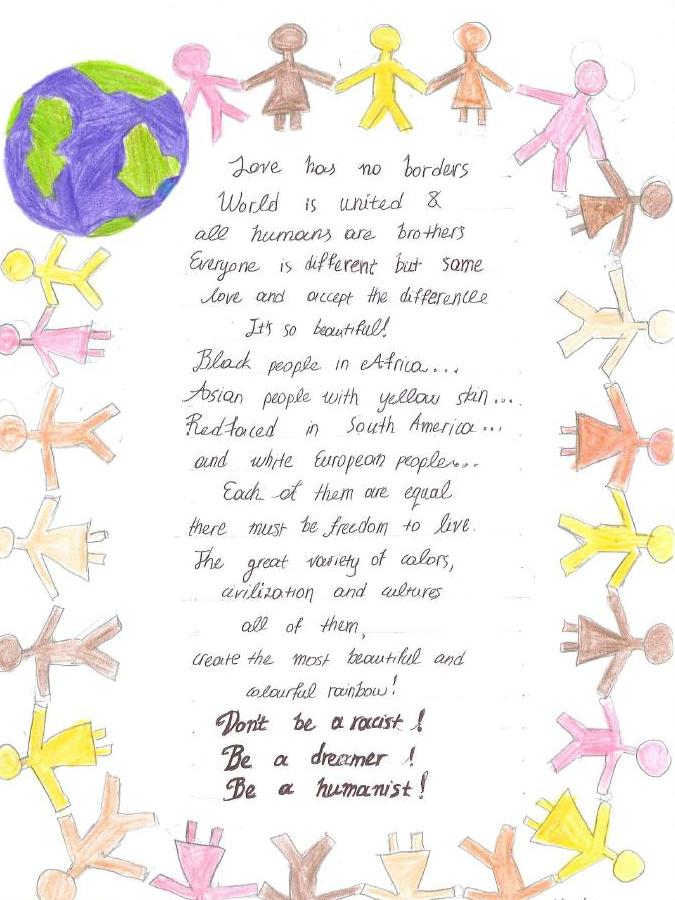 Love has no borders
World is united &
all humans are brothers
Everyone is different but same
love and accept the difference
It's so beautiful!
Black people in Africa...
Asian people with yellow skin...
Redfaced in South America...
and white European people...
Each of them are equal
there must be freedom to live.
The great variety of colors,
civilization and cultures
all of them,
create the most beautiful and
colourful rainbow!
Don't be a racist!
Be a dreamer!
Be a humanist!